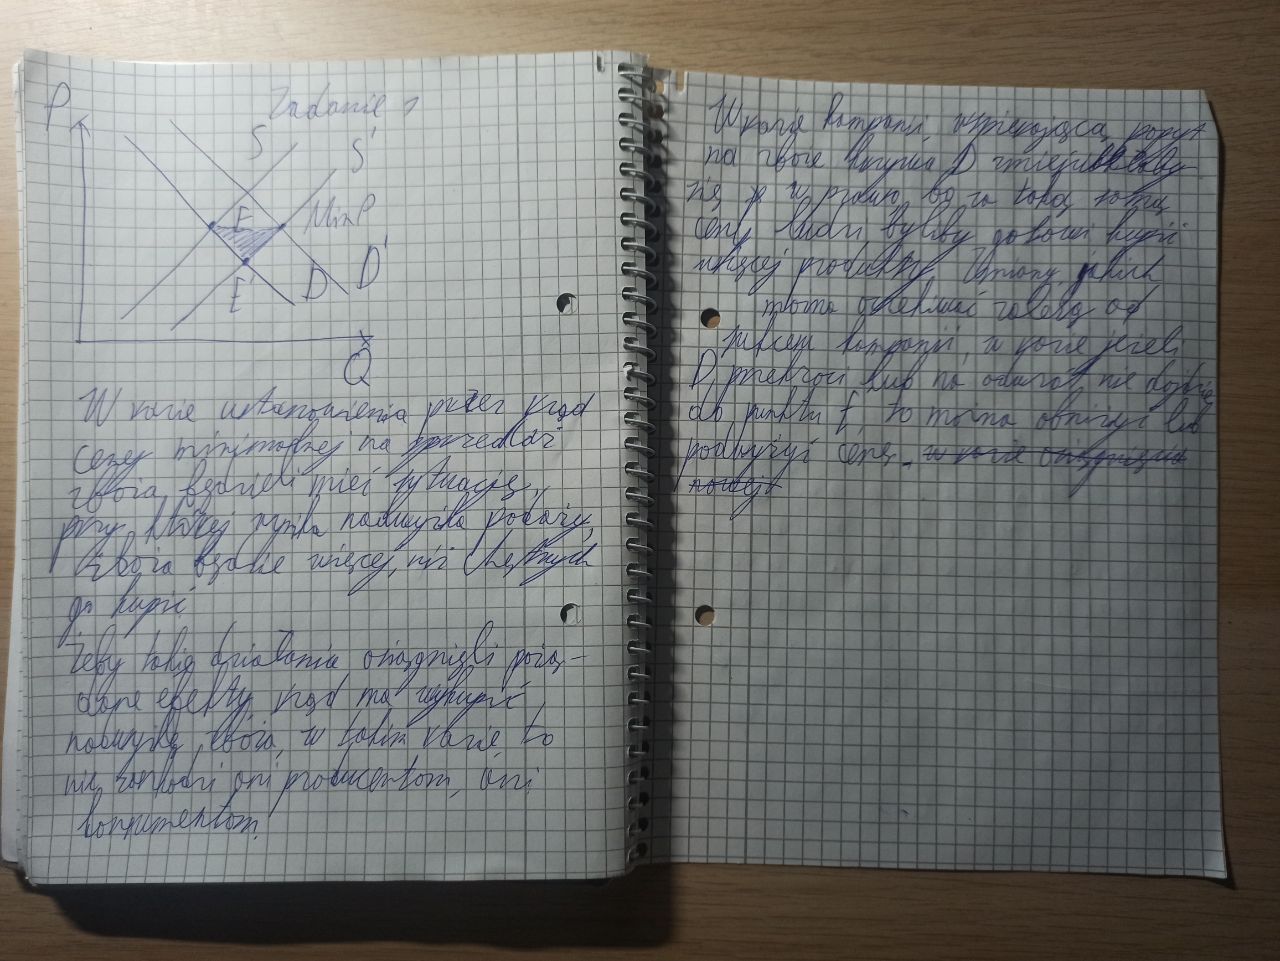 Zadanie 1
P
S
S'
E
MinP
E
D
D'
Q
W razie ustanowienia przez rząd
ceny minimalnej na sprzedaż
zboża będzieli mieć sytuację,
przy której wynika nadwyżka podaży,
zboża będzie więcej, niż chętnych
go kupić
Żeby takie działania osiągnęli pożą-
dane efekty rząd ma wykupić
nadwyżkę zboża, w takim razie to
nie zaszkodzi ani producentom, ani
konsumentom.
W razie kampanii, wspierająca popyt
na zboże krzywa D
się w prawo, bo za taką samą
cenę ludzi byliby gotowi kupić
więcej produktów. Zmiany, jakich
można oczekiwać zależą od
sukcesu kampanii, w razie jeżeli
D przekroci lub na odwrót nie dojdzie
do punktu E, to można obniżyć lub
podwyżyć cenę.